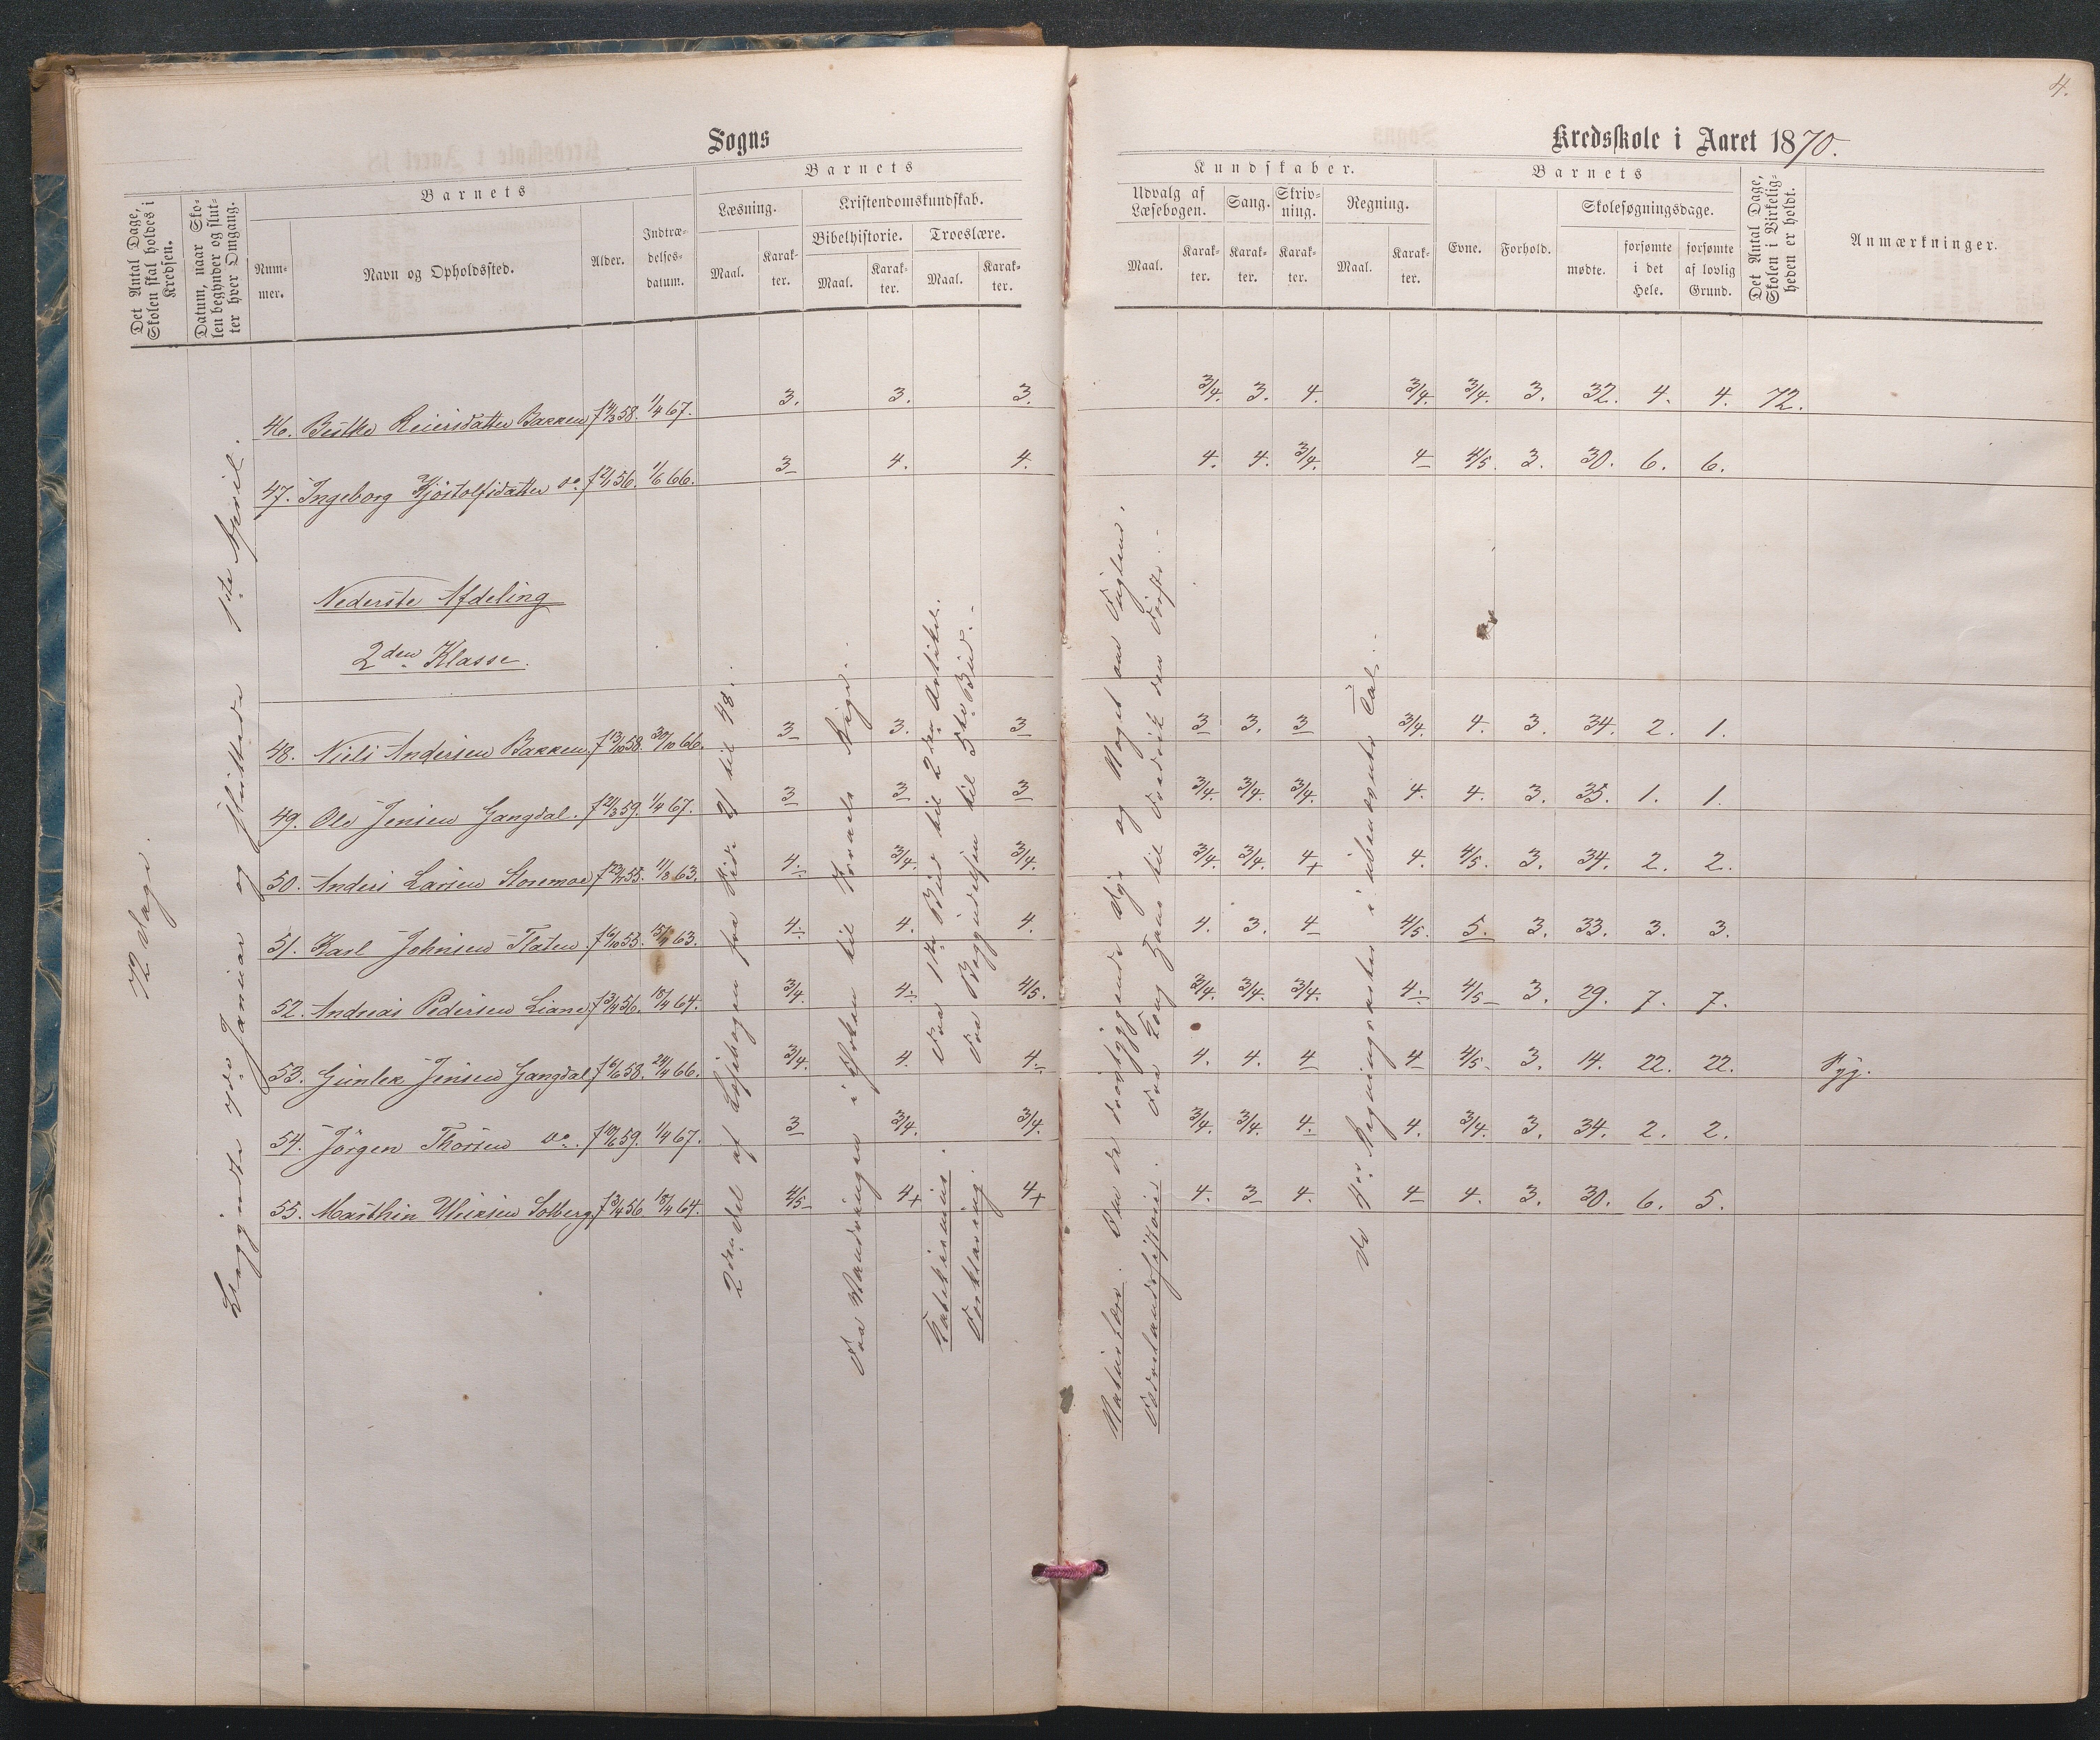 4.
Sogns
Kredsskole i Aaret 1870.
Det Antal Dage, Skolen skal holdes i Kredsen.
Datum, naar Skolen begynder og slutter hver Omgang.
Barnets
Nummer.
Navn og Opholdssted.
Alder.
Indtrædelsesdatum.
Barnets
Læsning.
Maal.
Karakter.
Kristendomskundskab.
Bibelhistorie.
Maal.
Karakter.
Troeslære.
Maal.
Karakter.
Kundskaber.
Udvalg af Læsebogen.
Maal.
Karakter.
Sang.
Karakter.
Skrivning.
Karakter.
Regning.
Maal.
Karakter.
Barnets
Evne.
Forhold.
Skolesøgningsdage.
mødte.
forsømte i det Hele.
forsømte af lovlig Grund.
Det Antal Dage, Skolen i Virkeligheden er holdt.
Anmærkninger.
72 Dage.
Begyndte 7de Januar og sluttede 1ste April.
46. Reiersdatter Bakken f 58. 1/4 67. 3. 3. 3. 3/4. 3. 4. 3/4. 3/4. 3. 32. 4. 4. 72.
47. Ingeborg Kjöstolfsdatter do f 56. 1/6 66. 3 4. 4. 4. 4. 3/4. 4 4/5. 3. 30. 6. 6.
Nederste Afdeling
2den Klasse.
48. Niels Andersen Bakken. f 13/10 58. 30/10 66. 3 3. 3 3 3. 3 3/4. 4. 3. 34. 2. 1.
49. Ole Jensen Gangdal. f 21/3 59. 1/4 67. 3 3 3 3/4. 3/4. 3/4. 4. 4. 3. 35. 1. 1.
50. Anders Larsen Storemoe f 55. 11/8 63. 4. 3/4. 3/4. 3/4. 3/4. 4+ 4. 4/5. 3. 34. 2. 2.
51. Karl Johnsen Flaten. f 6/10 55. 63. 4. 4. 4. 4. 3. 4 4/5. 5. 3. 33. 3. 3.
52. Andreas Pedersen Liane f 3/4 56. 18/4 64. 3/4. 4. 4/5. 3/4. 3/4. 3/4. 4. 4/5 3. 29. 7. 7.
53. Gunlek Jensen Gangdal f 6/6 58. 24/4 66. 3/4. 4. 4. 4. 4. 4 4 4/5. 3. 14. 22. 22. Syg.
54. Jörgen Thorsen do. f 59. 1/4 67. 3 3/4. 3/4. 3/4. 3/4. 4. 4. 3/4. 3. 34. 2. 2.
55. Marthin Ulriksen Solberg. f 3/4 56 18/4 64. 4/5 4+ 4+ 4. 3 4. 4 4. 3. 30. 6. 5.
2den Del af Læsebogen fra Side 21 til 48.
Fra Vandringen i Ørken til Israels Rige.
Katekismus. Fra 1ste Bud til 2den Artikel.
Forklaring. Fra Begyndelsen til 5te Bud.
Naturlære. Om de Dyr og Noget om Fuglene.
Fædrelandshistorie. Fra Kong til Fredrik den Første.
De 4 Regningsarter i ubenævnte Tal.